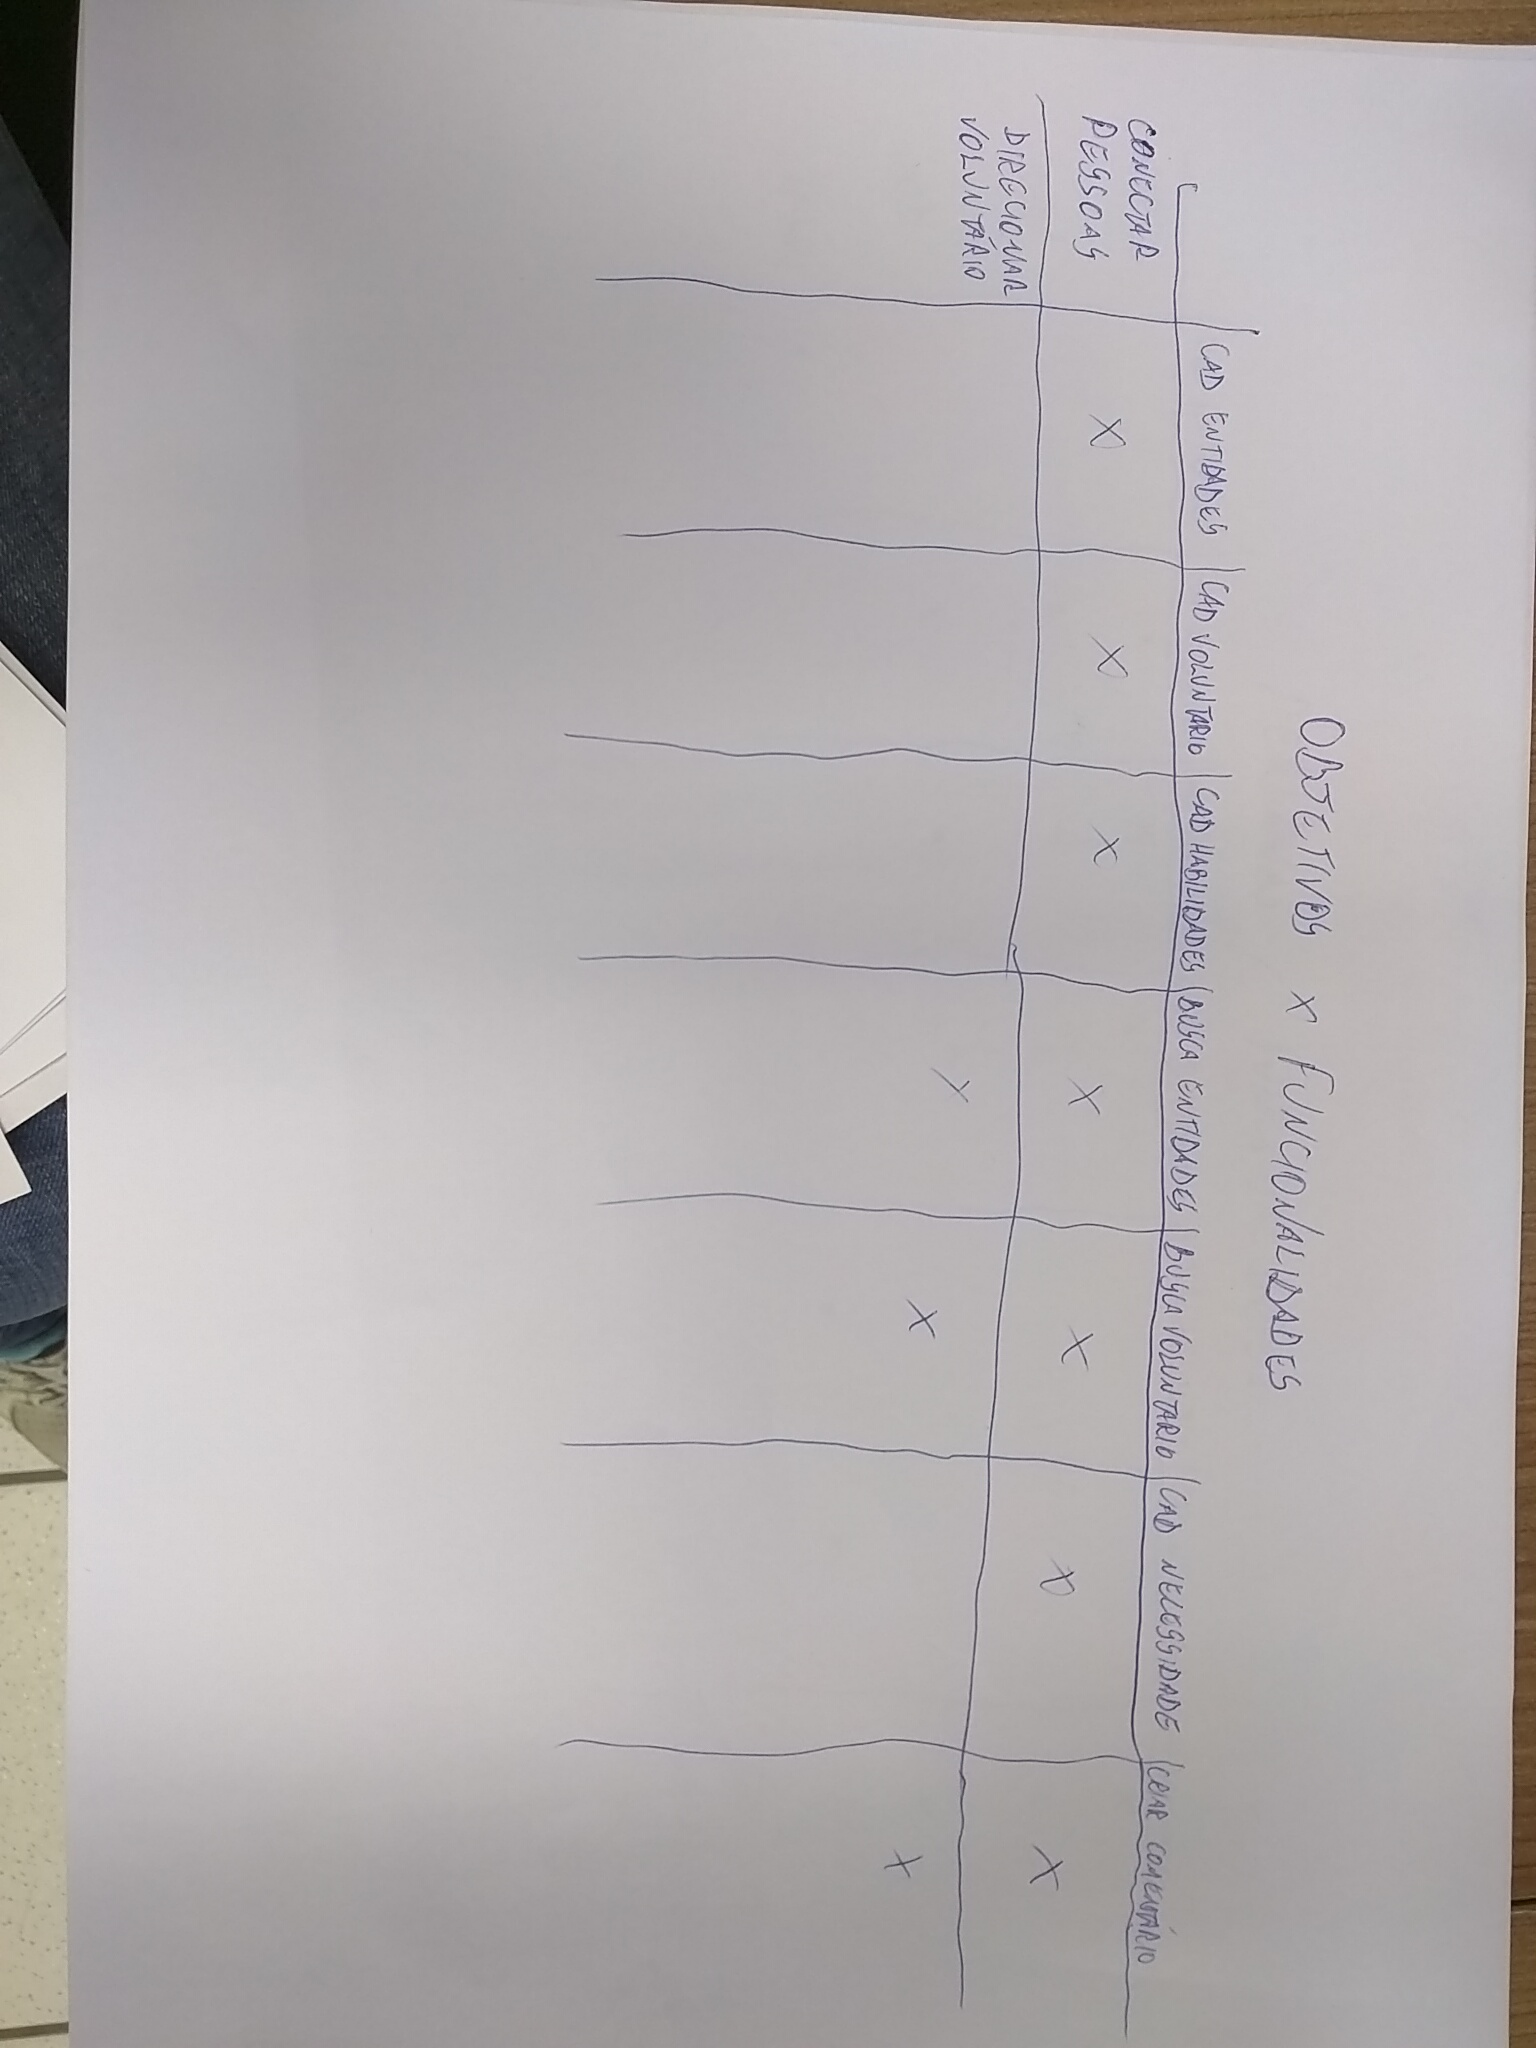 OBJETIVOS X FUNCIONALIDADES
CAD ENTIDADES | CAD VOLUNTARIO | CAD HABILIDADES | BUSCA ENTIDADES | BUSCA VOLUNTARIO | CAD NECESSIDADE | CRIAR COMENTÁRIO
CONECTAR
PESSOAS X X X X X X X
DIRECIONAR
VOLUNTÁRIO X X X